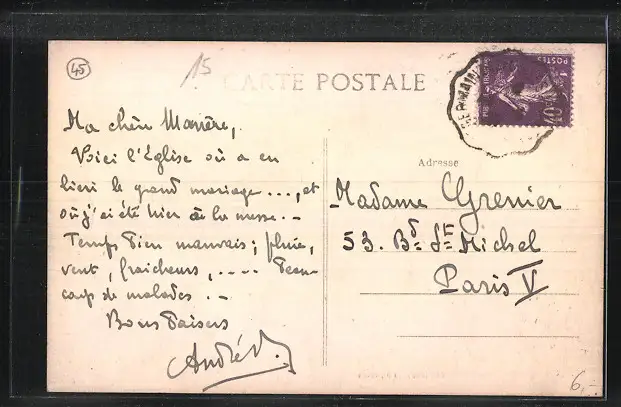 45
15
CARTE POSTALE
POSTES
Adresse
Ma chère
Voici l'Église où a eu
lieu le grand mariage ..., et
où j'ai été hier à la messe. -
Temps bien mauvais ; pluie,
vent, fraîcheurs, .... Beau-
coup de malades . -
Bons baisers
André
Madame Grenier
53. Bd. St. Michel
Paris V
6,-